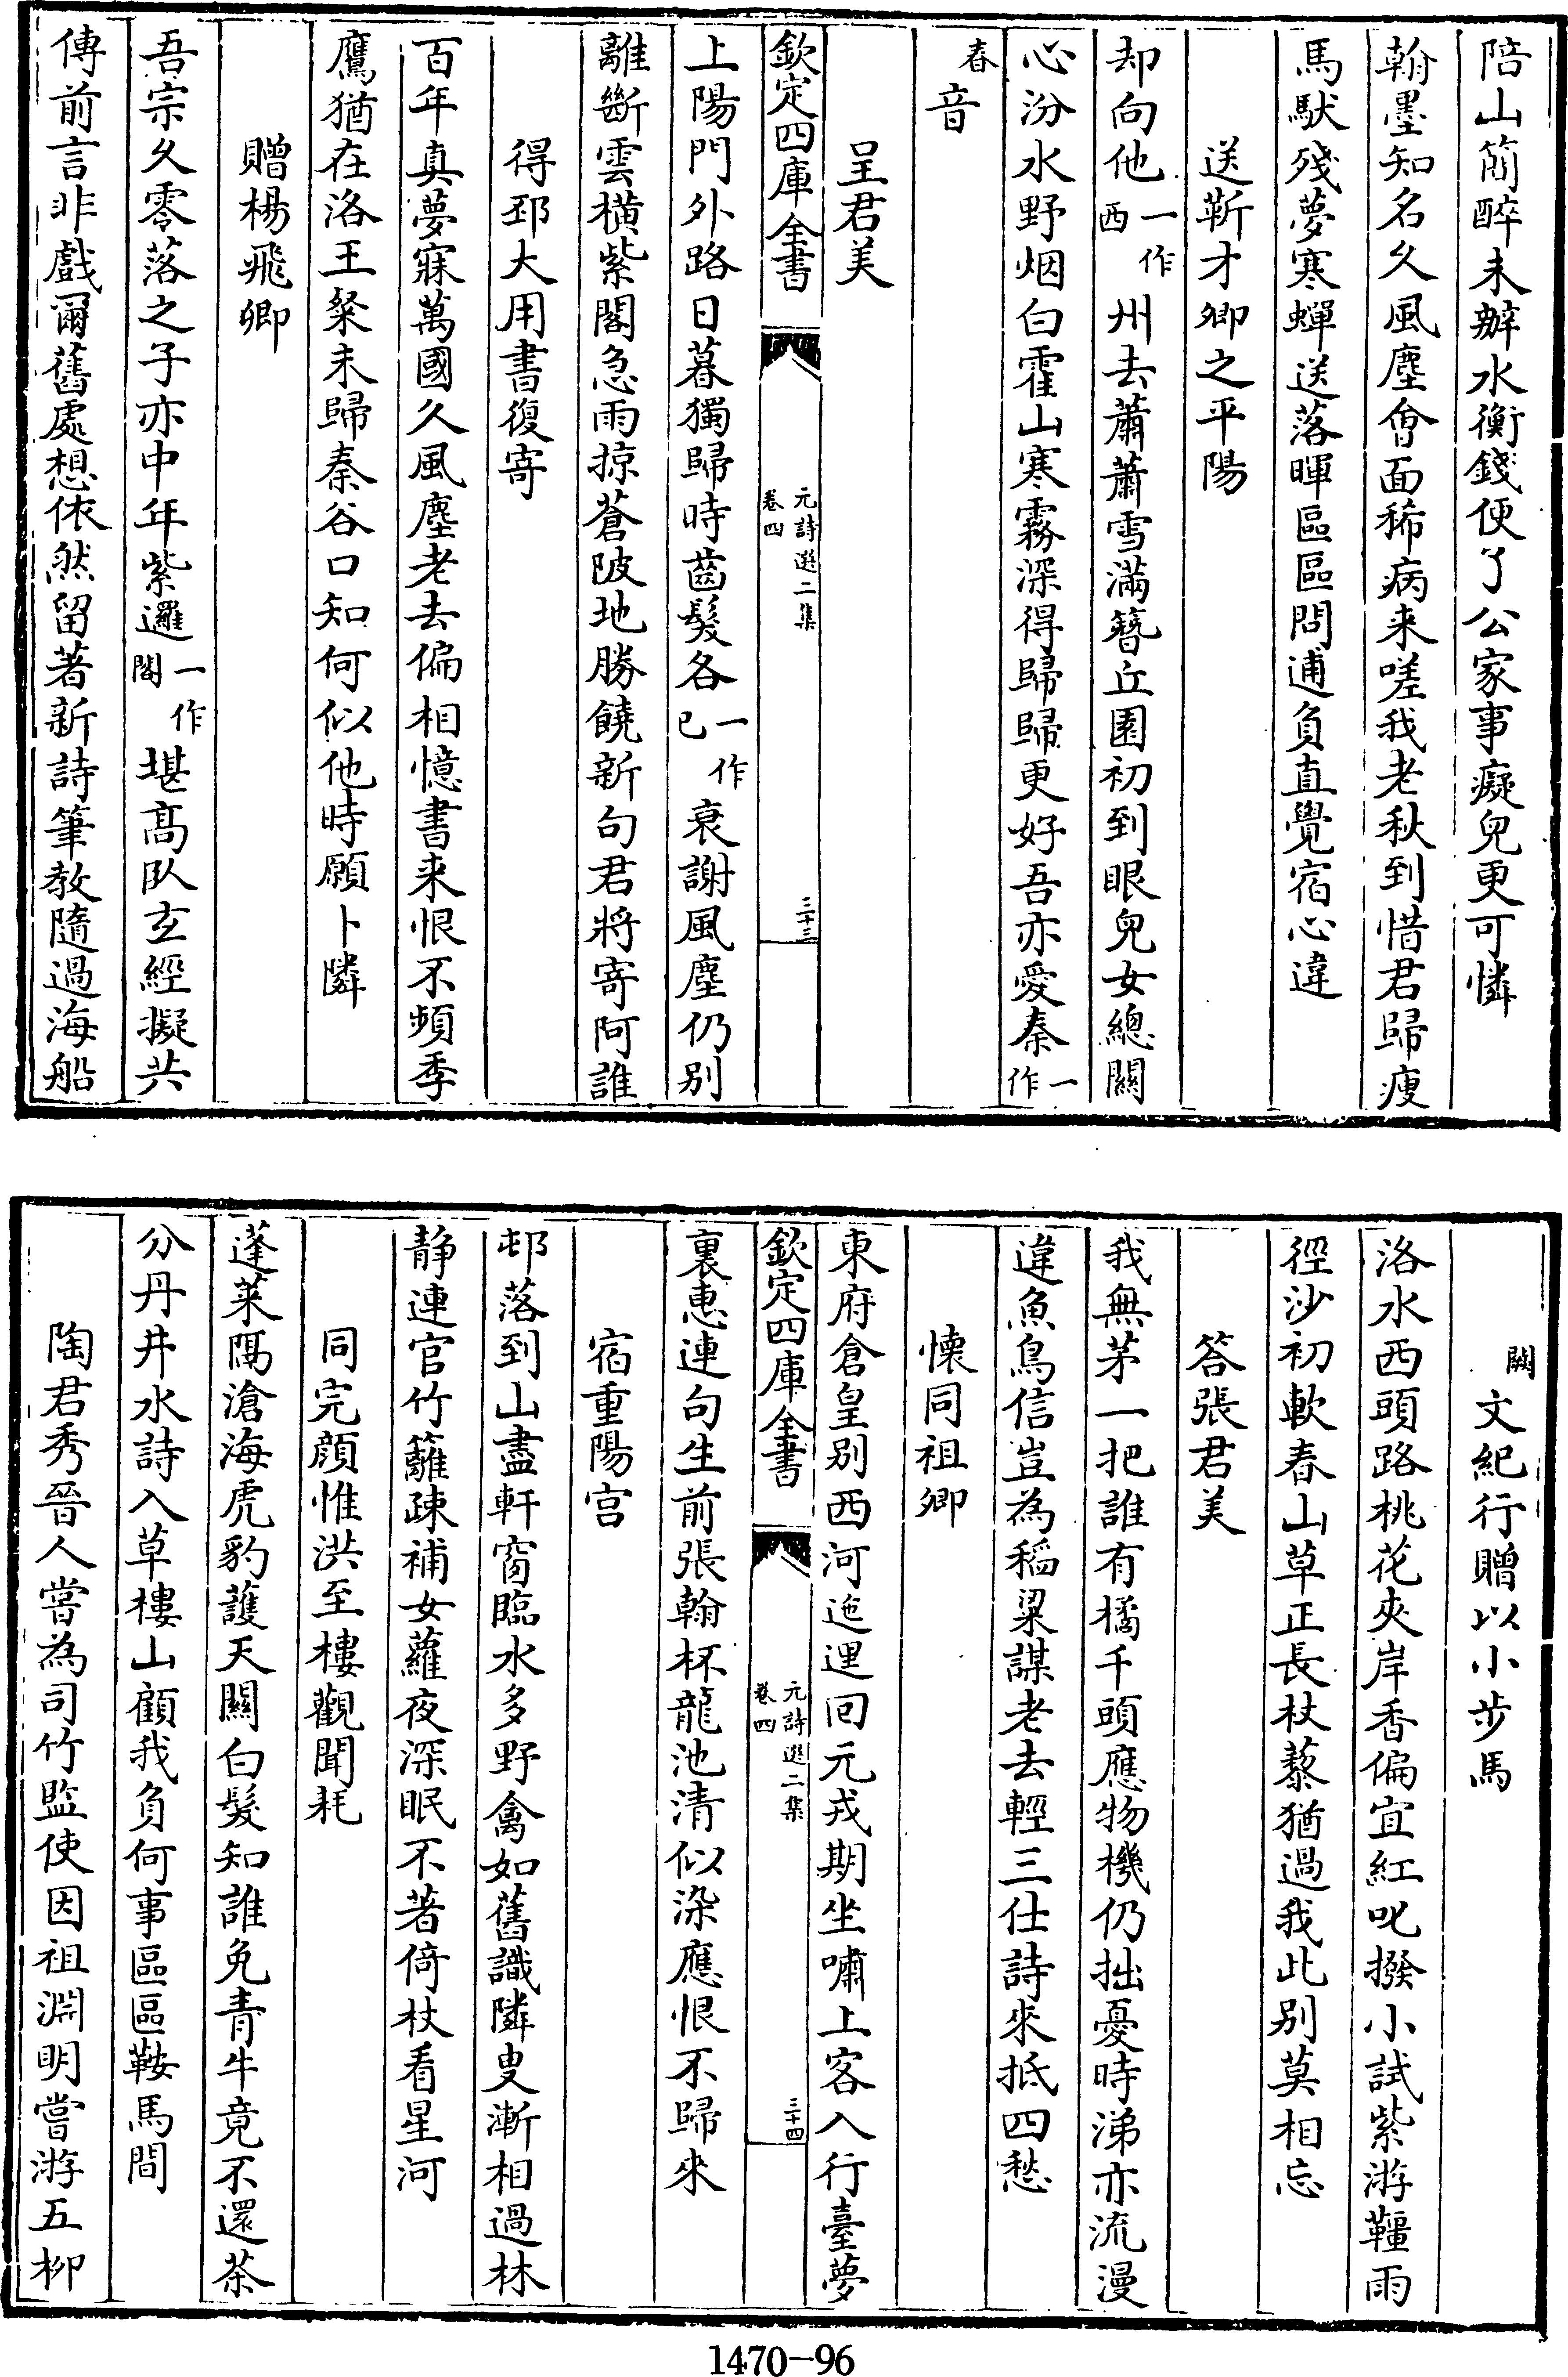 陪山簡醉未辦水衡錢便了公家事癡兒更可憐
翰墨知名久風塵會面稀病来嗟我老秋到惜君歸瘦
馬馱殘夢寒蟬送落暉區區問逋負直覺宿心違
送靳才卿之平陽
却向他一作西州去蕭蕭雪滿簪丘園初到眼兒女總關
心汾水野烟白霍山寒霧深得歸歸更好吾亦愛秦一作
春音
呈君美
欽定四庫全書
元詩選二集
卷四
三十三
上陽門外路日暮獨歸時齒髮各一作已衰謝風塵仍别
離斷雲横紫閣急雨掠蒼陂地勝饒新句君將寄阿誰
得邳大用書復寄
百年真夢寐萬國久風塵老去偏相憶書来恨不頻季
鷹猶在洛王粲未歸秦谷口知何似他時願卜隣
贈楊飛卿
吾宗久零落之子亦中年紫邏一作閣堪高臥玄經擬共
傳前言非戲爾舊處想依然留著新詩筆教隨過海船
闕文紀行贈以小步馬
洛水西頭路桃花夾岸香偏宜紅叱撥小試紫游韁雨
徑沙初軟春山草正長杖藜猶過我此别莫相忘
答張君美
我無茅一把誰有橘千頭應物機仍拙憂時涕亦流漫
違魚鳥信豈為稻粱謀老去輕三仕詩來抵四愁
懷同祖卿
東府倉皇别西河迤逦回元戎期坐嘯上客入行臺夢
欽定四庫全書
元詩選二集
卷四
三十四
裏惠連句生前張翰杯龍池清似染應恨不歸來
宿重陽宫
邨落到山盡軒窗臨水多野禽如舊識隣叟漸相過林
静連官竹籬疎補女蘿夜深眠不著倚杖看星河
同完顔惟洪至樓觀聞耗
蓬萊隔滄海虎豹護天關白髮知誰免青牛竟不還茶
分丹井水詩入草樓山顧我負何事區區鞍馬間
陶君秀晉人嘗為司竹監使因祖淵明嘗游五柳
1470-96